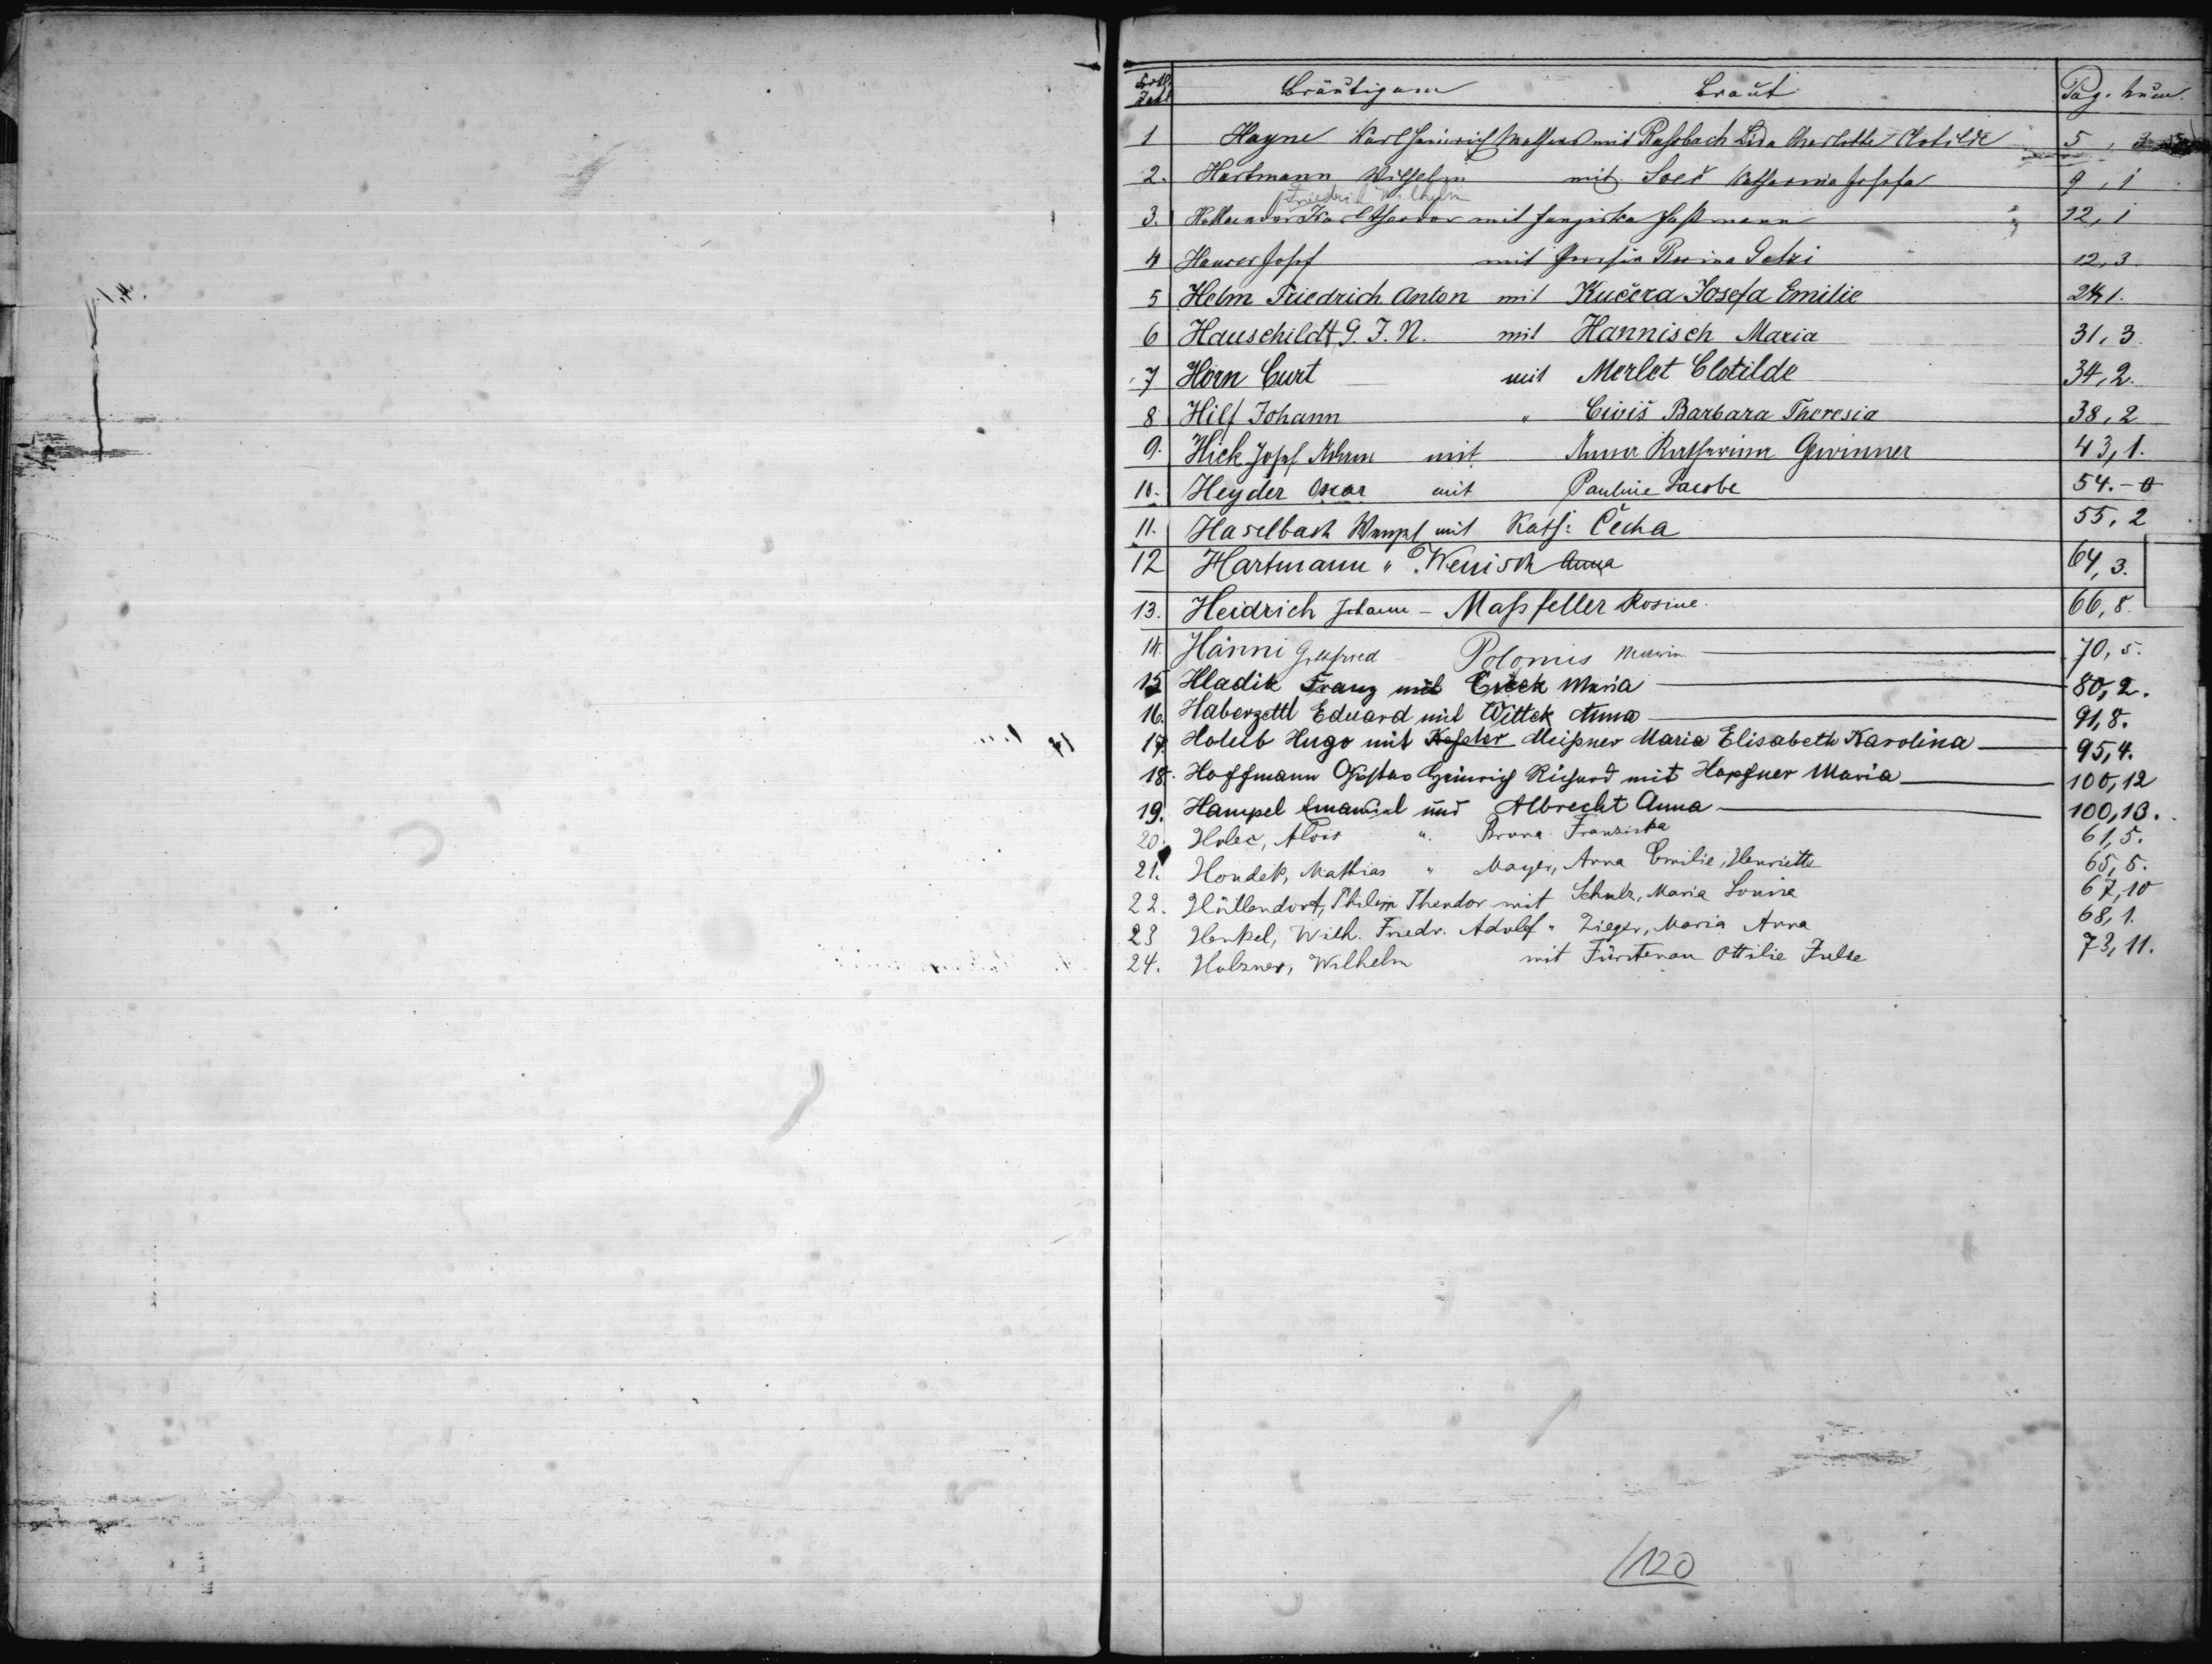 Bräutigam Braut Pag. Num.
1 Hayne Karl Heinrich mit Raßbach Lida Charlotte Clotilde 5,
2. Hartmann Wilhelm mit Katharina Josefa 9, 1
Friedrich Wilhelm
3. Karl Theodor mit 12, 1
4 Hauser Josef mit Rosina Petri 12, 3.
5 Helm Friedrich Anton mit Kučera Josefa Emilie 24, 1.
6 Hauschildt G. J. N. mit Hannisch Maria 31, 3
7 Horn Curt mit Merlet Clotilde 34, 2.
8 Hilf Johann " Civiš Barbara Theresia 38, 2
9. Hick Josef Adam mit Anna Katharina Gewinner 43, 1.
10. Heyder Oscar mit Pauline Jacobe 54.-
11. Haselbach Wenzel mit Kath: Čecha 55, 2
12 Hartmann " Wenisch Anna 64, 3.
13. Heidrich Johann - Maßfeller Rosine 66, 8.
14. Hänni Gottfried - Polomis 70, 5.
15 Hladik Franz mit Maria 80, 2.
16. Haberzettl Eduard mit Wittek Anna 91, 8.
17. Holub Hugo mit Meißner Maria Elisabeth Karolina 95, 4.
18. Hoffmann Gustav Heinrich Richard mit Hapfner Maria 100, 12
19. Hampel Emanuel und Albrecht Anna 100, 13.
20. Holec, Alois ". Bruna Franziska 61, 5.
21. Houdek, Mathias " Mayer, Anna Emilie, Henriette 65, 5.
22. Hüllendorf, Philipp Theodor mit Schulz, Maria Louise 67, 10
23 Henkel, Wilh. Friedr. Adolf " Zieger, Maria Anna 68, 1.
24. Holzner, Wilhelm mit Fürstenau Ottilie 73, 11.
120